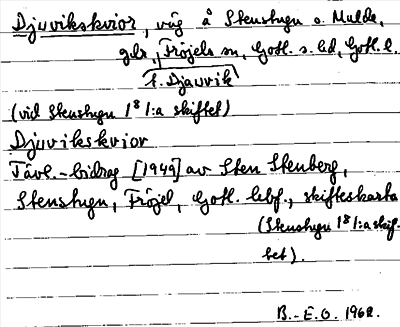 Djuvikskvior, väg å Stenstugu o. Mulde,
gdr, Fröjels sn, Gotl. s. hd, Gotl. l.
t. Djauvik
(vid Stenstugu 1⁸ 1:a skiftet)
Djuvikskvior
Tävl.-bidrag [1949] av Sten Stenberg,
Stenstugu, Fröjel, Gotl. lebf., skifteskarta
(Stenstugu 1⁸ 1:a skif-
tet).
B.-E.O. 1962.